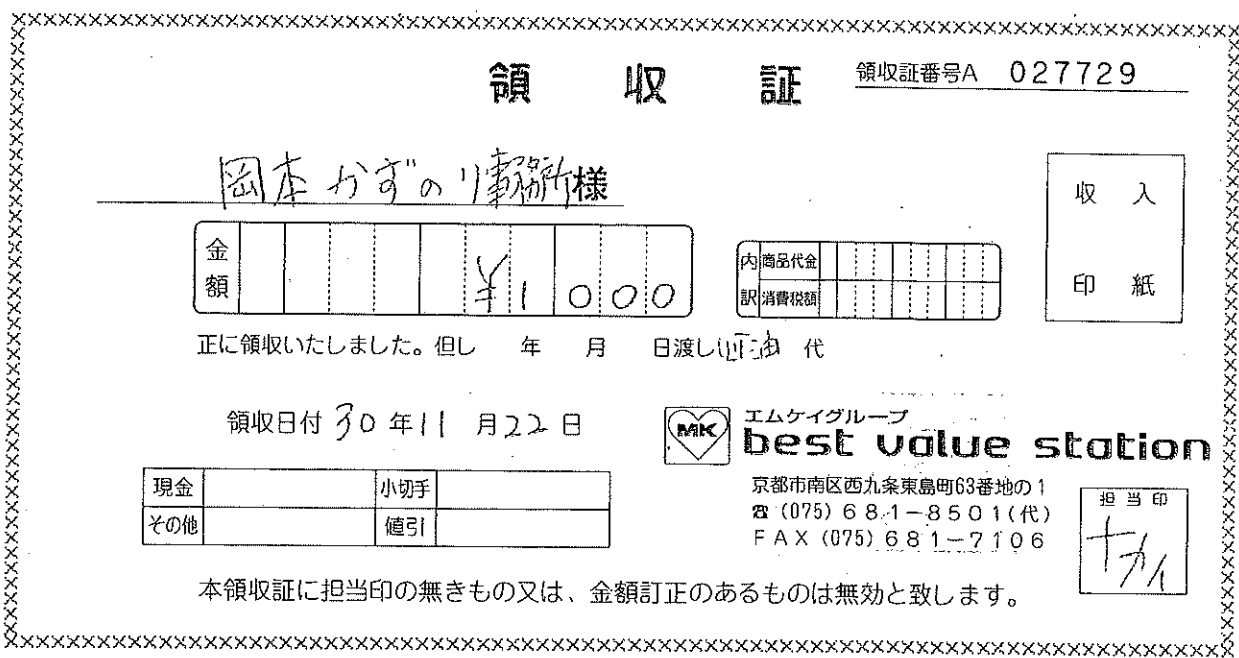 領収証
領収証番号A 027729
岡本かずのり事務所様
収入
印紙
金額 ¥1000
内訳 商品代金
消費税額
正に領収いたしました。但し 年 月 日渡し 代
領収日付 30年11月22日
MK エムケイグループ
best value station
現金 小切手
その他 値引
京都市南区西九条東島町63番地の1
☎(075)681-8501(代)
FAX(075)681-7106
担当印
ナカイ
本領収証に担当印の無きもの又は、金額訂正のあるものは無効と致します。